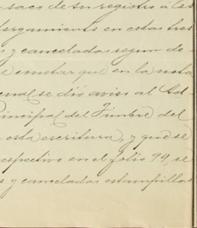 saco de su registro á los
bergamiento en estas tres
y canceladas segun de
e constar que en la nota
cual se dió aviso al Ad
Principal del Timbre del
esta escritura, y que se
espectivo en el folio 99, se
s y canceladas estampillas